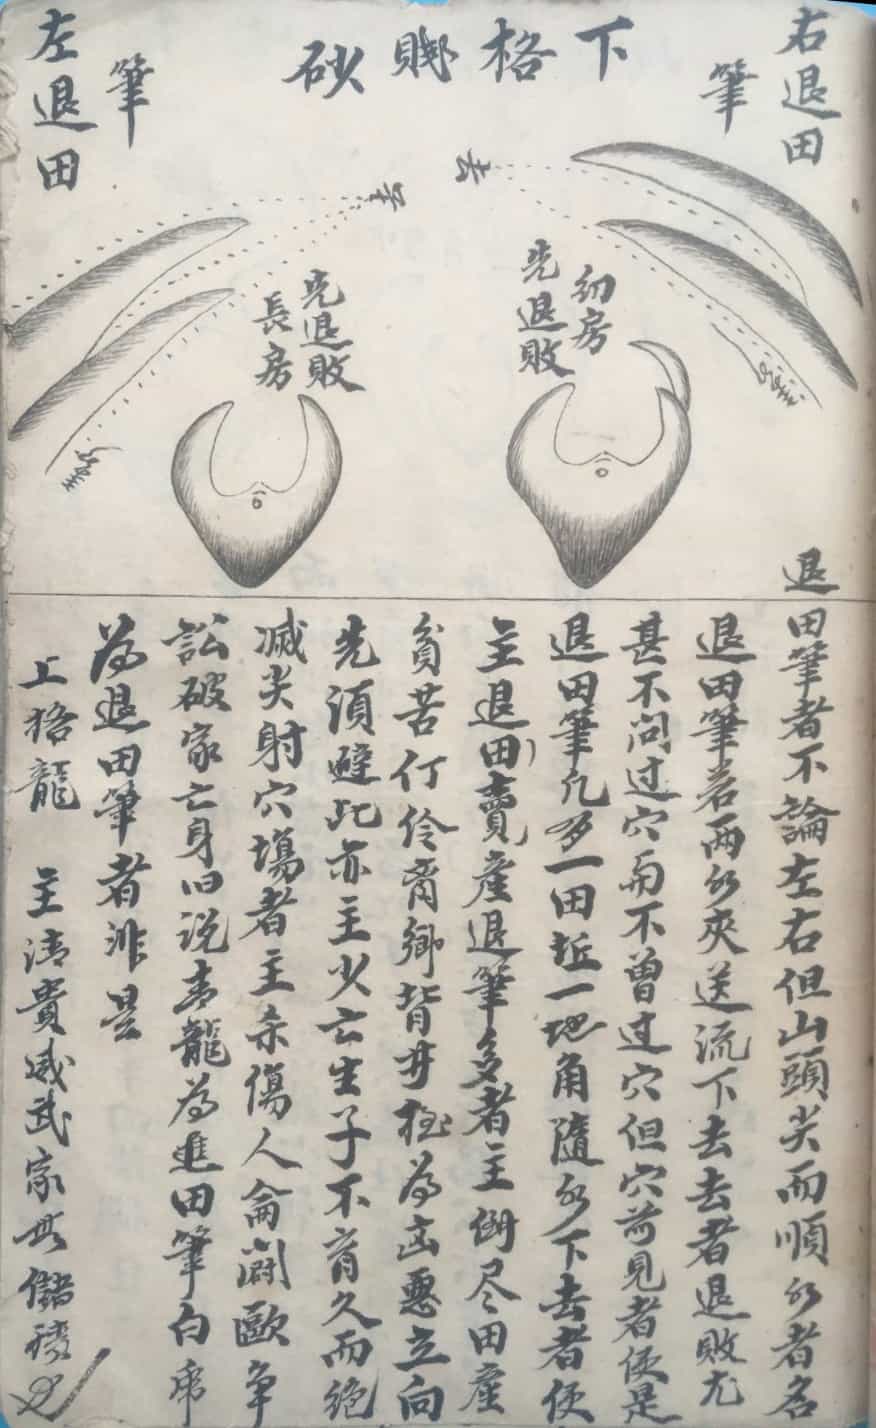 下格賤砂
右退田
筆
左退田
筆
去
幼房
先退敗
先退敗
長房
退田筆者不論左右但山頭尖而順水者名
退田筆若兩水夾送流下去去者退敗尤
甚不問过穴而不曾过穴但穴前見者便是
退田筆凡多一田坵一地角隨水下去者便
主退田賣產退筆多者主倒尽田產
貧苦仃伶离鄉背井極為凶惡立向
先須避此亦主少亡生子不育久而絕
滅尖射穴場者主杀傷人命鬪毆争
訟破家亡身旧说青龍為進田筆白虎
為退田筆者非是
上格龍　主清貴威武家無儲積